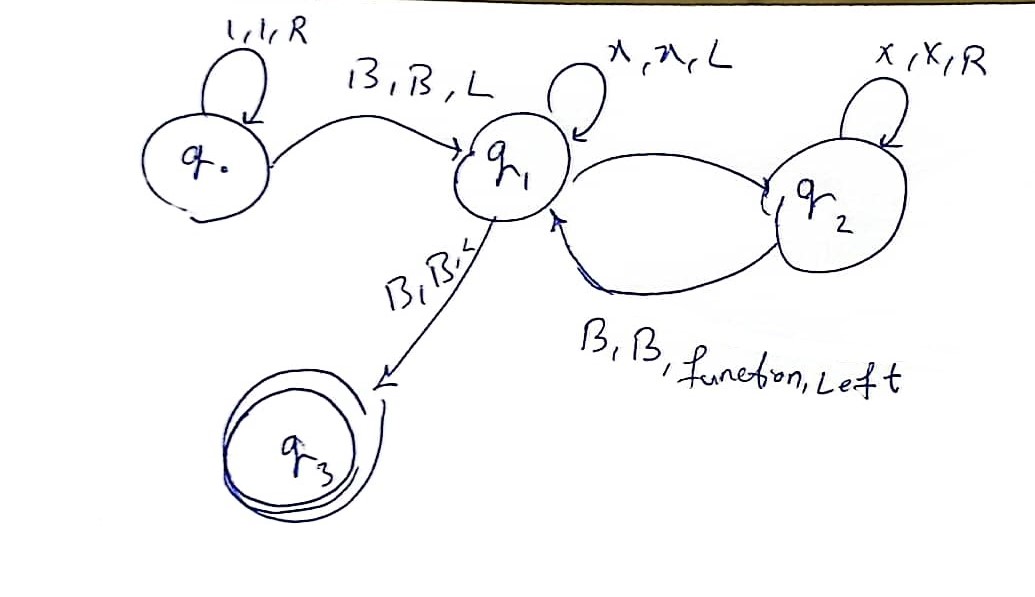 1,1,R
B,B,L
x,x,L
x,x,R
q.
q1
q2
B,B,L
B,B, function, Left
q3